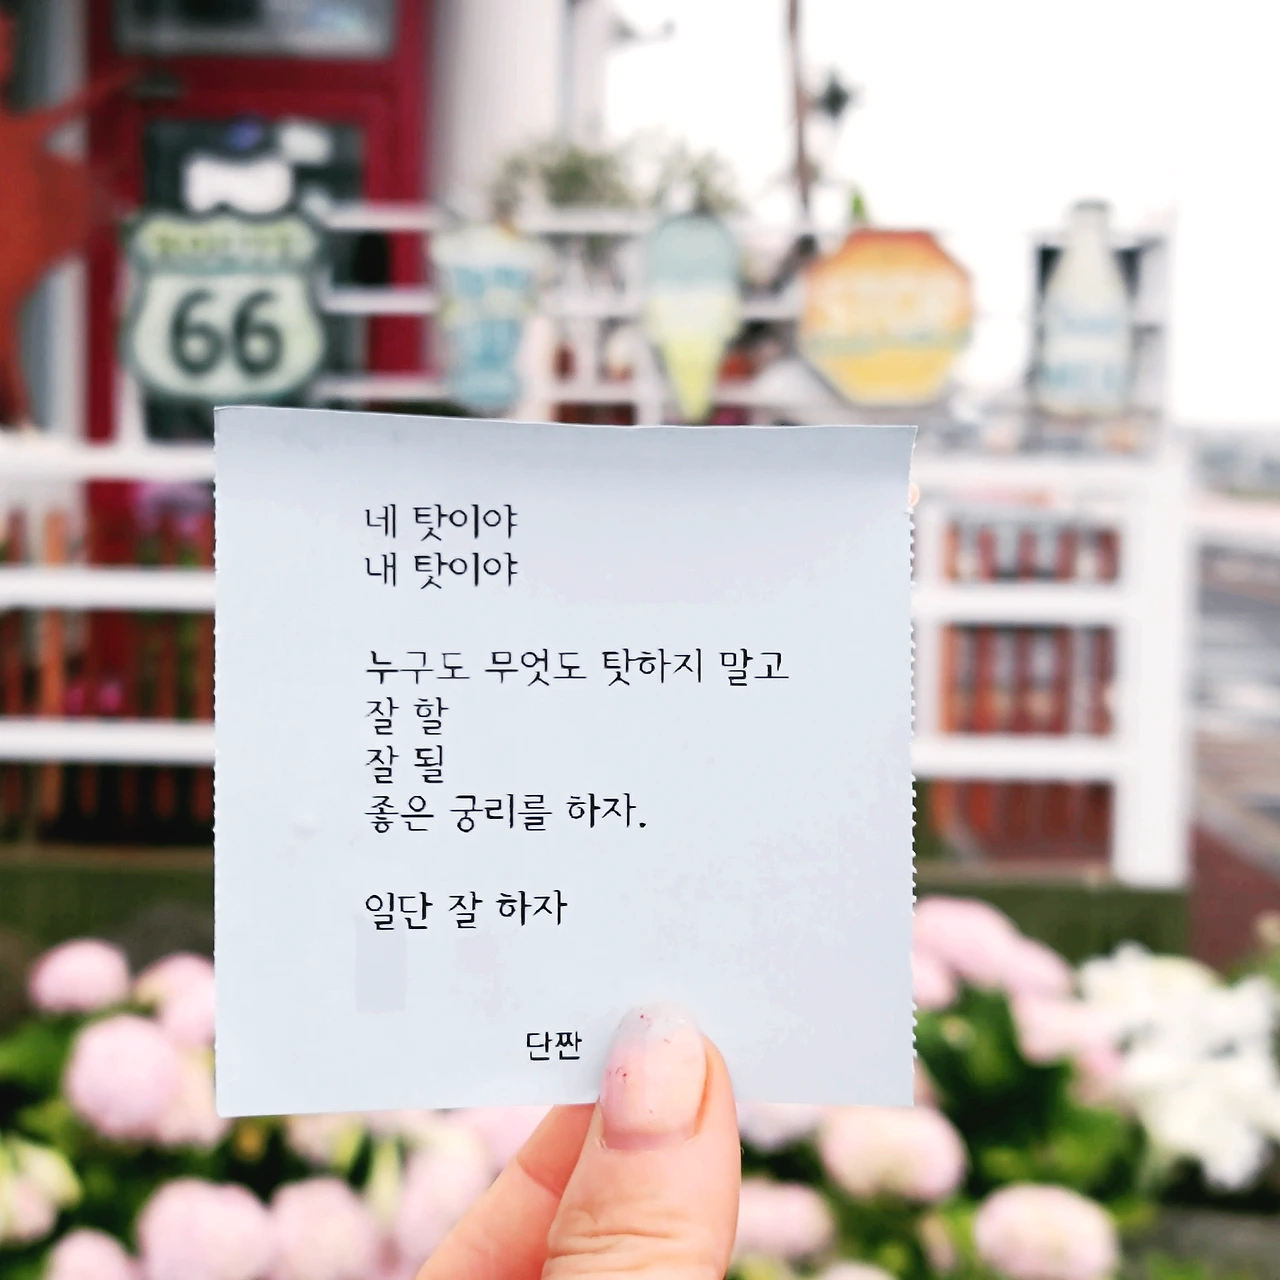 66
네 탓이야
내 탓이야
누구도 무엇도 탓하지 말고
잘 할
잘 될
좋은 궁리를 하자.
일단 잘 하자
단짠